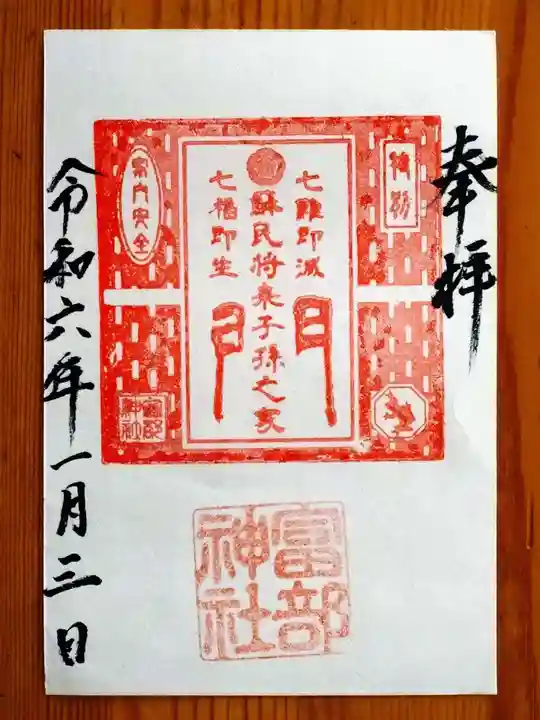 奉拝
七難即滅
蘇民将来子孫之家
門
七福即生
家内安全
富部
神社
富部
神社
令和六年一月三日